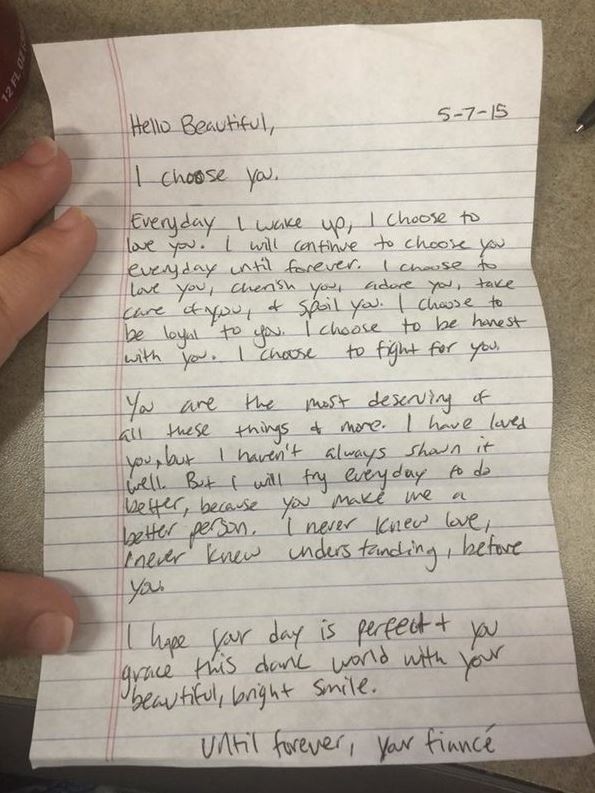 12 FL OZ
5-7-15
Hello Beautiful,
I choose you.
Everyday I wake up, I choose to
love you. I will continue to choose you
everyday until forever. I choose to
love you, cherish you, adore you, take
care of you, & spoil you. I choose to
be loyal to you. I choose to be honest
with you. I choose to fight for you.
You are the most deserving of
all these things & more. I have loved
you, but I haven't always shown it
well. But I will try everyday to do
better, because you make me a
better person. I never knew love,
I never knew understanding, before
you.
I hope your day is perfect & you
grace this dark world with your
beautiful, bright smile.
until forever, your fiancé